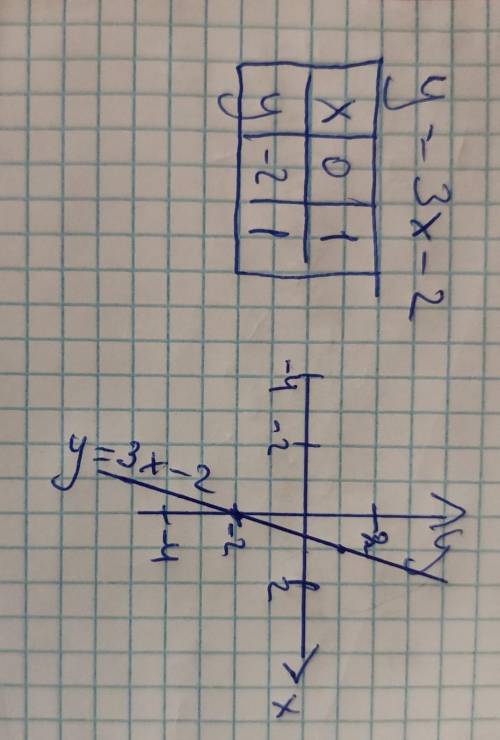 y = 3x - 2
x 0 1
y -2 1
y
2
-4 -2 2 x
-2
-4
y = 3x - 2